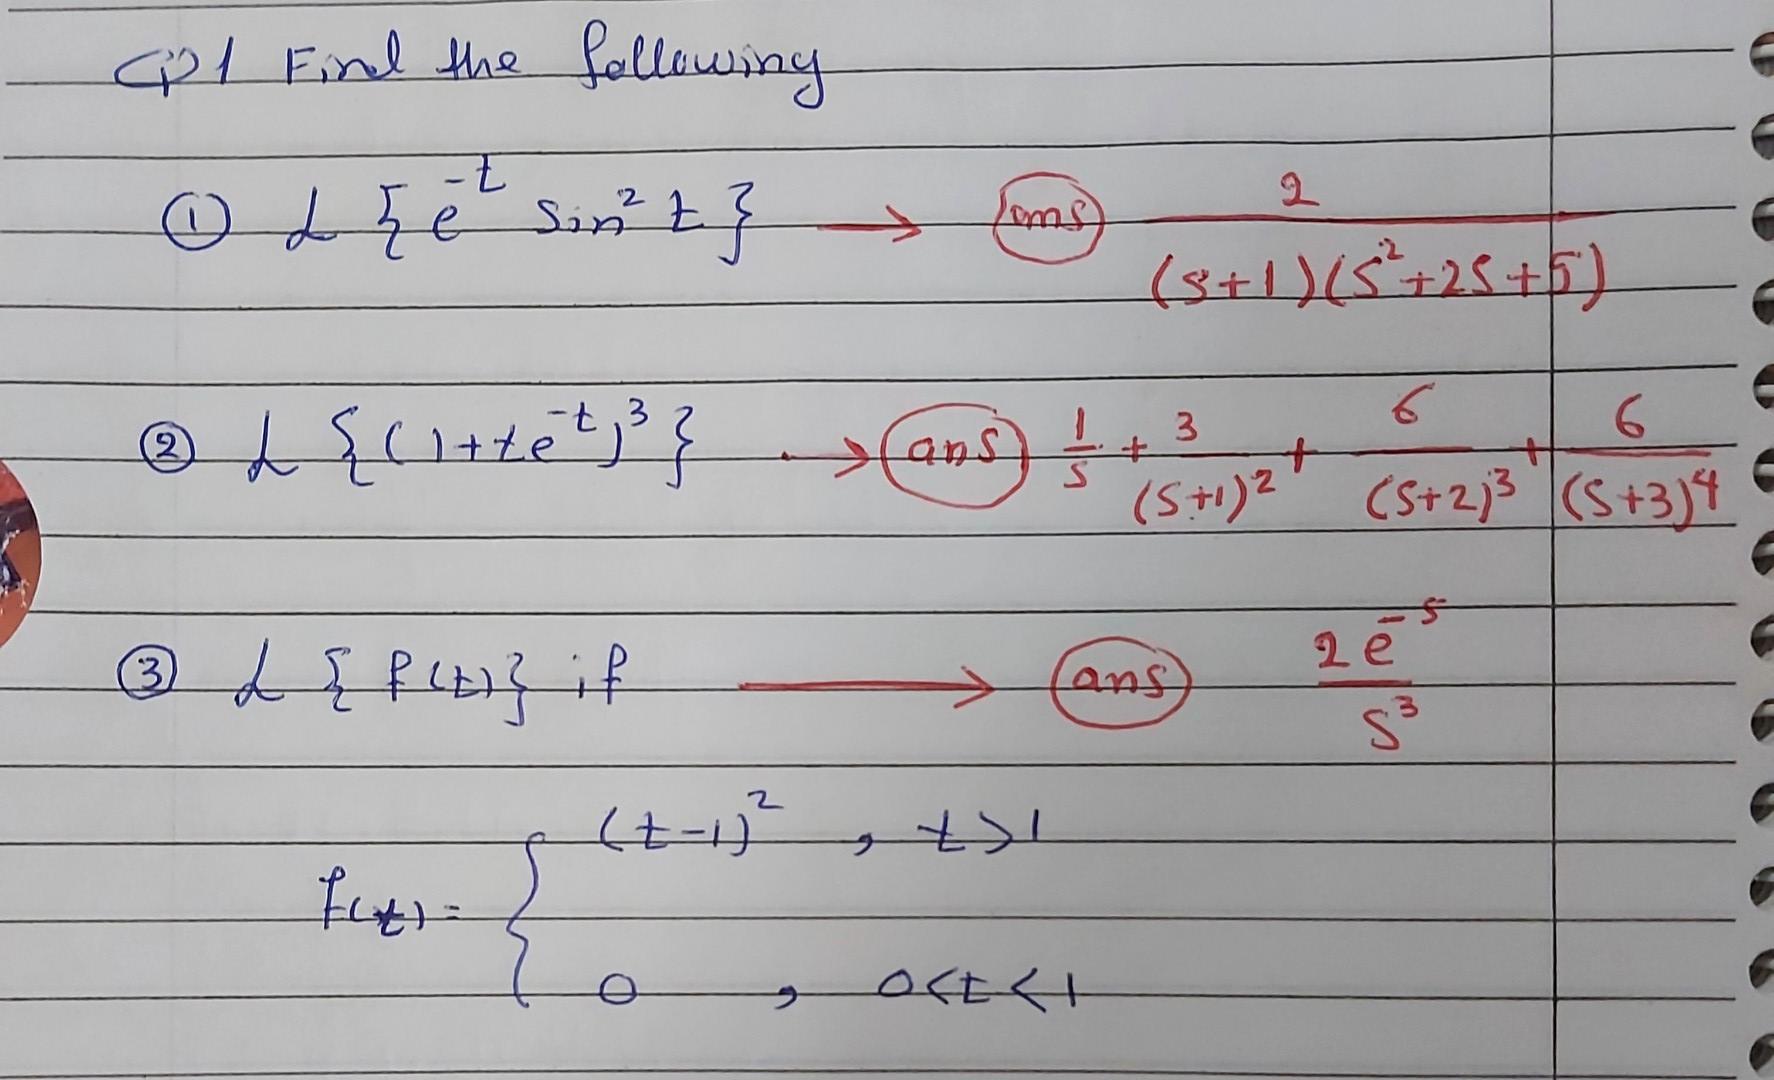 Q1 Find the following
① ℒ {e^-t sin² t} → ans 2 / (s+1)(s²+2s+5)
② ℒ {(1+te^-t)³} → ans 1/s + 3/(s+1)² + 6/(s+2)³ + 6/(s+3)⁴
③ ℒ {f(t)} if → ans 2e^-s / s³
f(t) = { (t-1)² , t>1
0 , 0<t<1